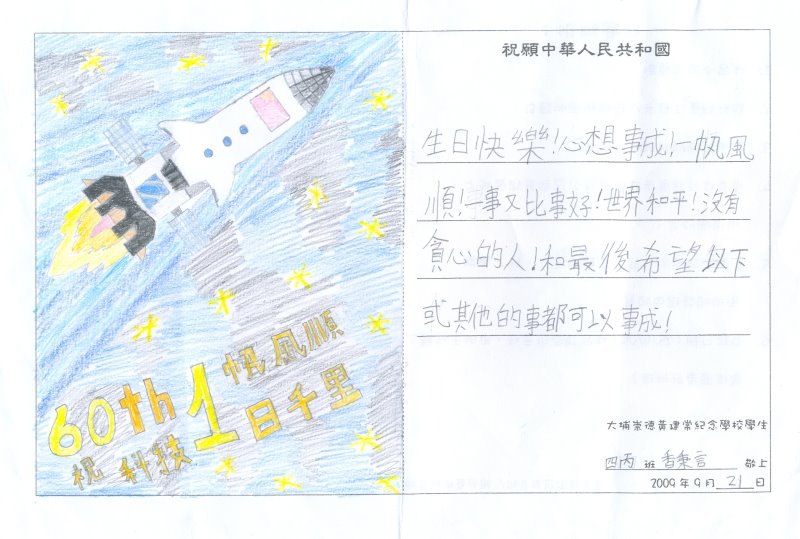 60th 1 帆風順
祝 科技 日千里
祝願中華人民共和國
生日快樂!心想事成!一帆風
順!一事又比事好!世界和平!沒有
貪心的人!和最後希望以下
或其他的事都可以事成!
大埔崇德黃建常紀念學校學生
四丙 班 香秉言 敬上
2009年9月 21 日